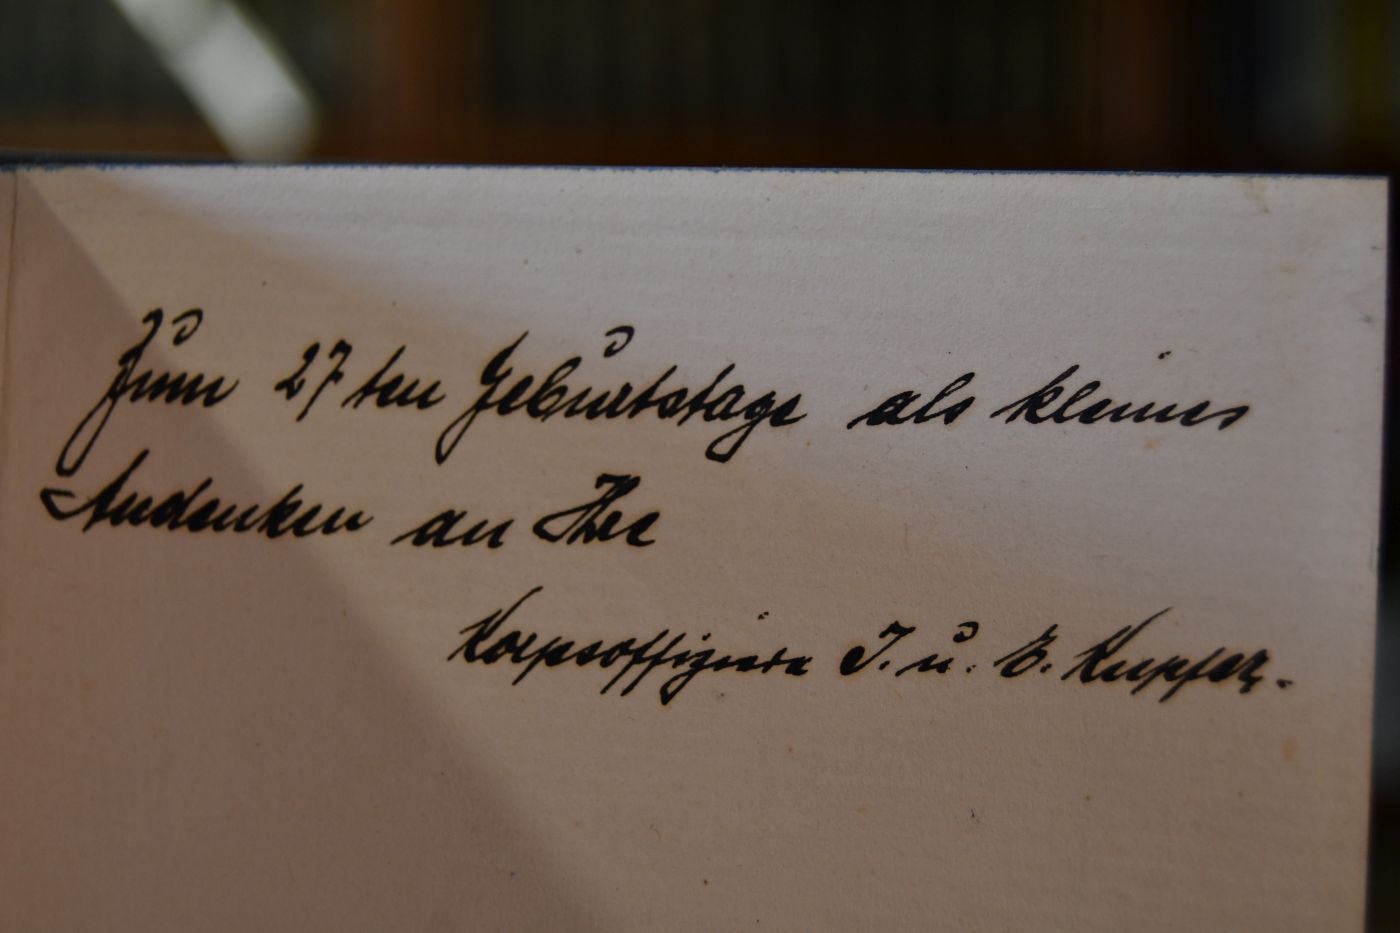 Zum 27ten Geburtstage als kleines
Andenken an Ihre
Korpsoffiziere J. u. E. Kupfer.